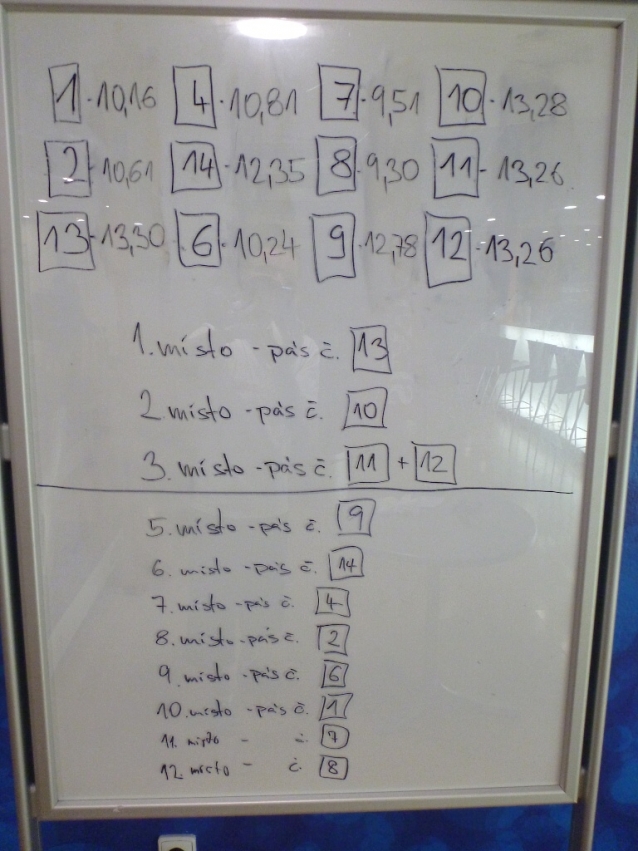 1 - 10,16 4 - 10,81 7 - 9,51 10 - 13,28
2 - 10,61 14 - 12,35 8 - 9,30 11 - 13,26
13 - 13,30 6 - 10,24 9 - 12,78 12 - 13,26
1. místo - pás č. 13
2. místo - pás č. 10
3. místo - pás č. 11 + 12
5. místo - pás č. 9
6. místo - pás č. 14
7. místo - pás č. 4
8. místo - pás č. 2
9. místo - pás č. 6
10. místo - pás č. 1
11. místo - č. 7
12. místo - č. 8